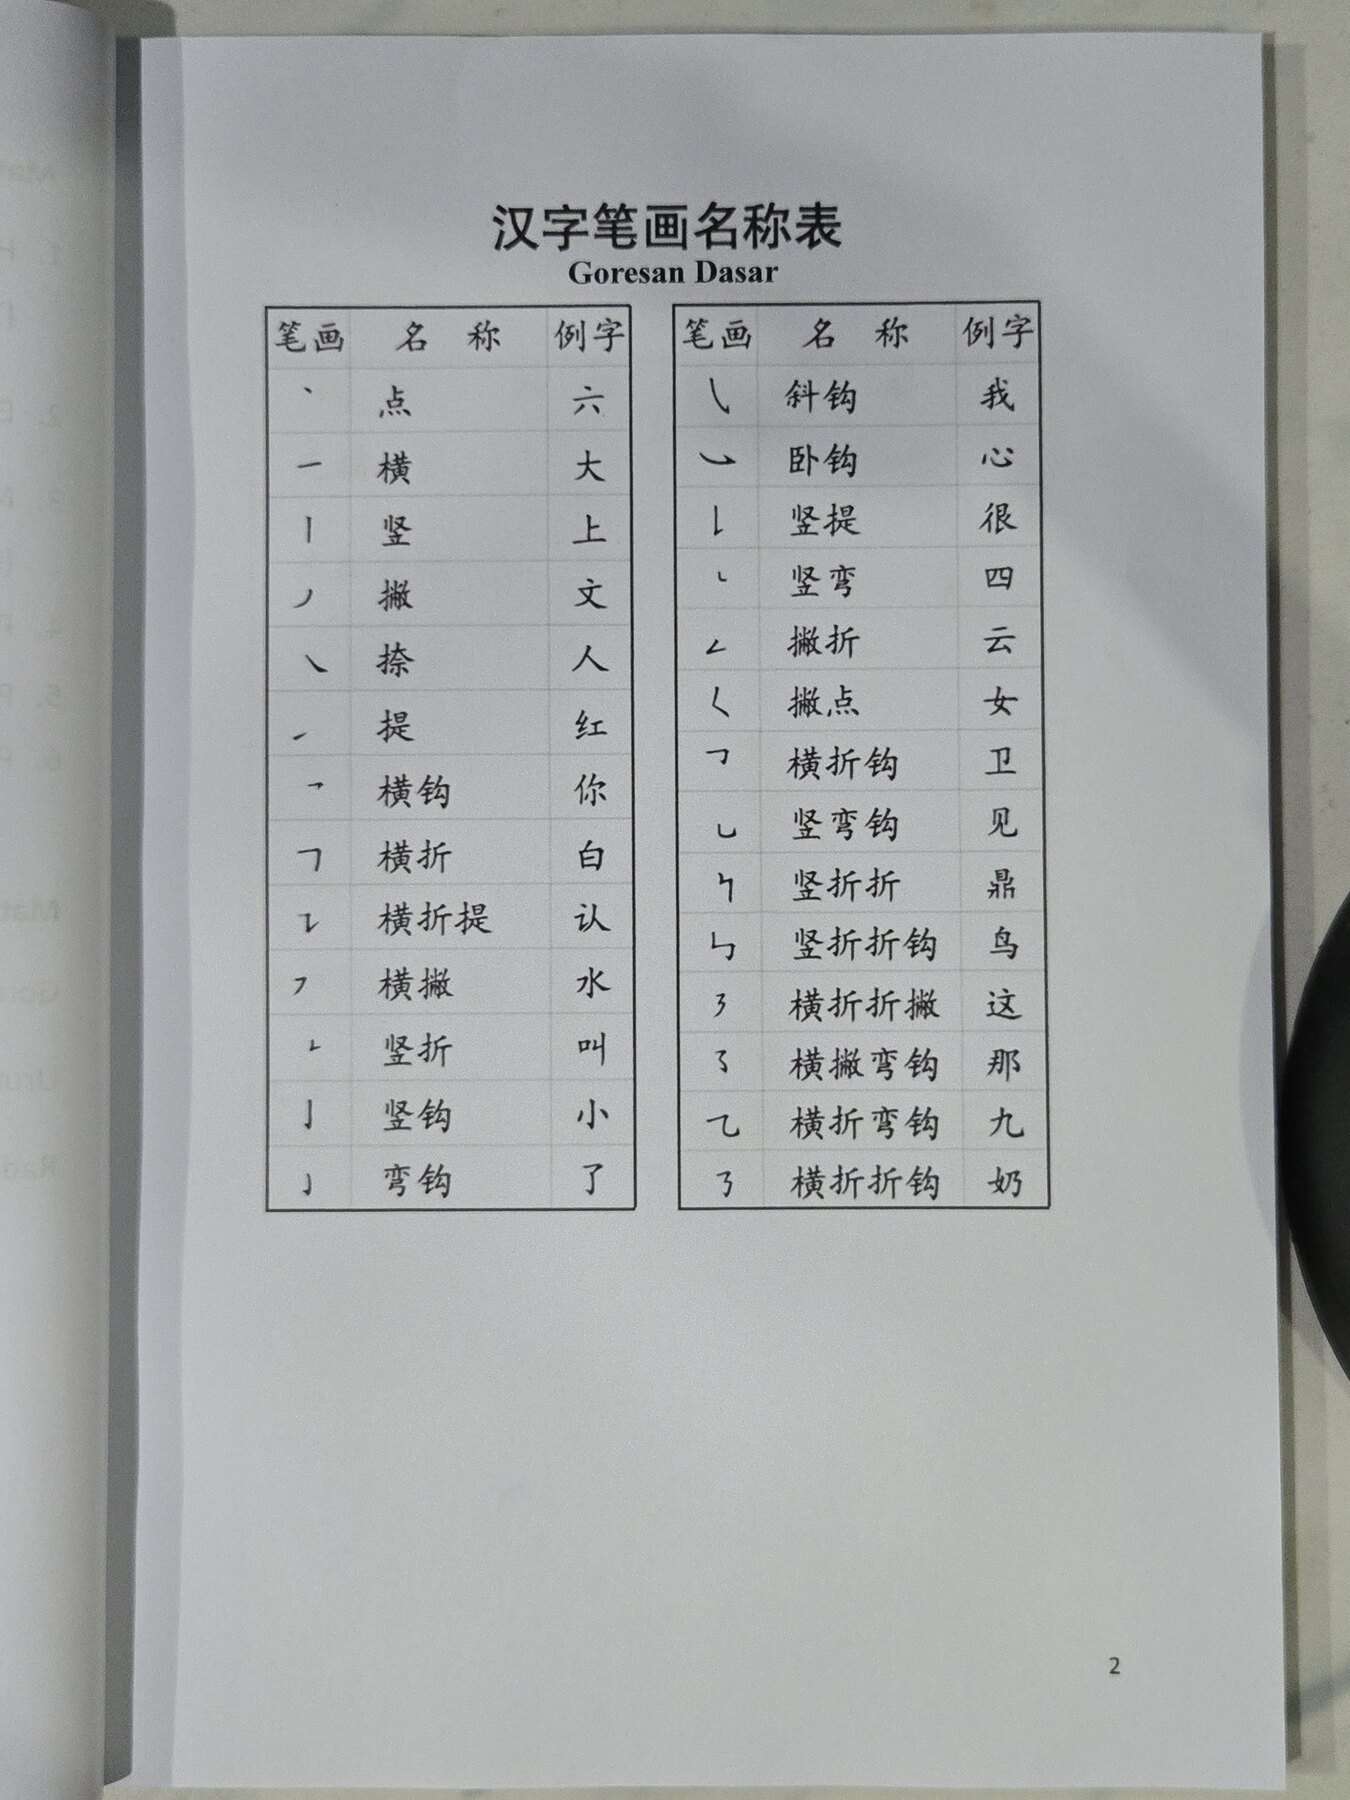 汉字笔画名称表
Goresan Dasar
笔画 名 称 例字
丶 点 六
一 横 大
丨 竖 上
丿 撇 文
㇏ 捺 人
㇀ 提 红
乛 横钩 你
𠃍 横折 白
㇊ 横折提 认
㇇ 横撇 水
𠃊 竖折 叫
亅 竖钩 小
㇁ 弯钩 了
笔画 名 称 例字
㇂ 斜钩 我
㇃ 卧钩 心
𠄌 竖提 很
㇄ 竖弯 四
𠃋 撇折 云
𡿨 撇点 女
𠃌 横折钩 卫
乚 竖弯钩 见
㇞ 竖折折 鼎
㇉ 竖折折钩 鸟
㇋ 横折折撇 这
㇌ 横撇弯钩 那
㇈ 横折弯钩 九
𠄎 横折折钩 奶
2